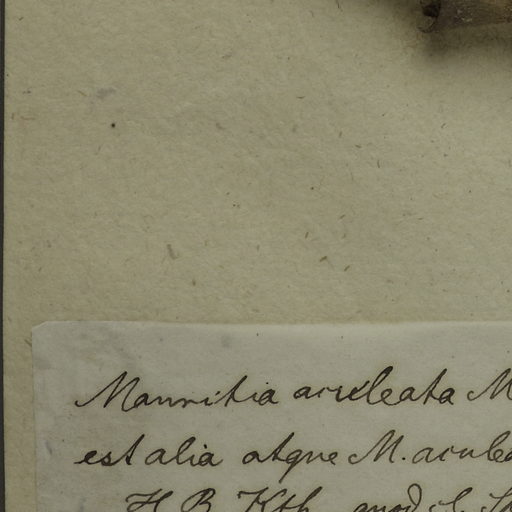 Mauritia aculeata M
est alia atque M. aculea
H. B. Kth. quod